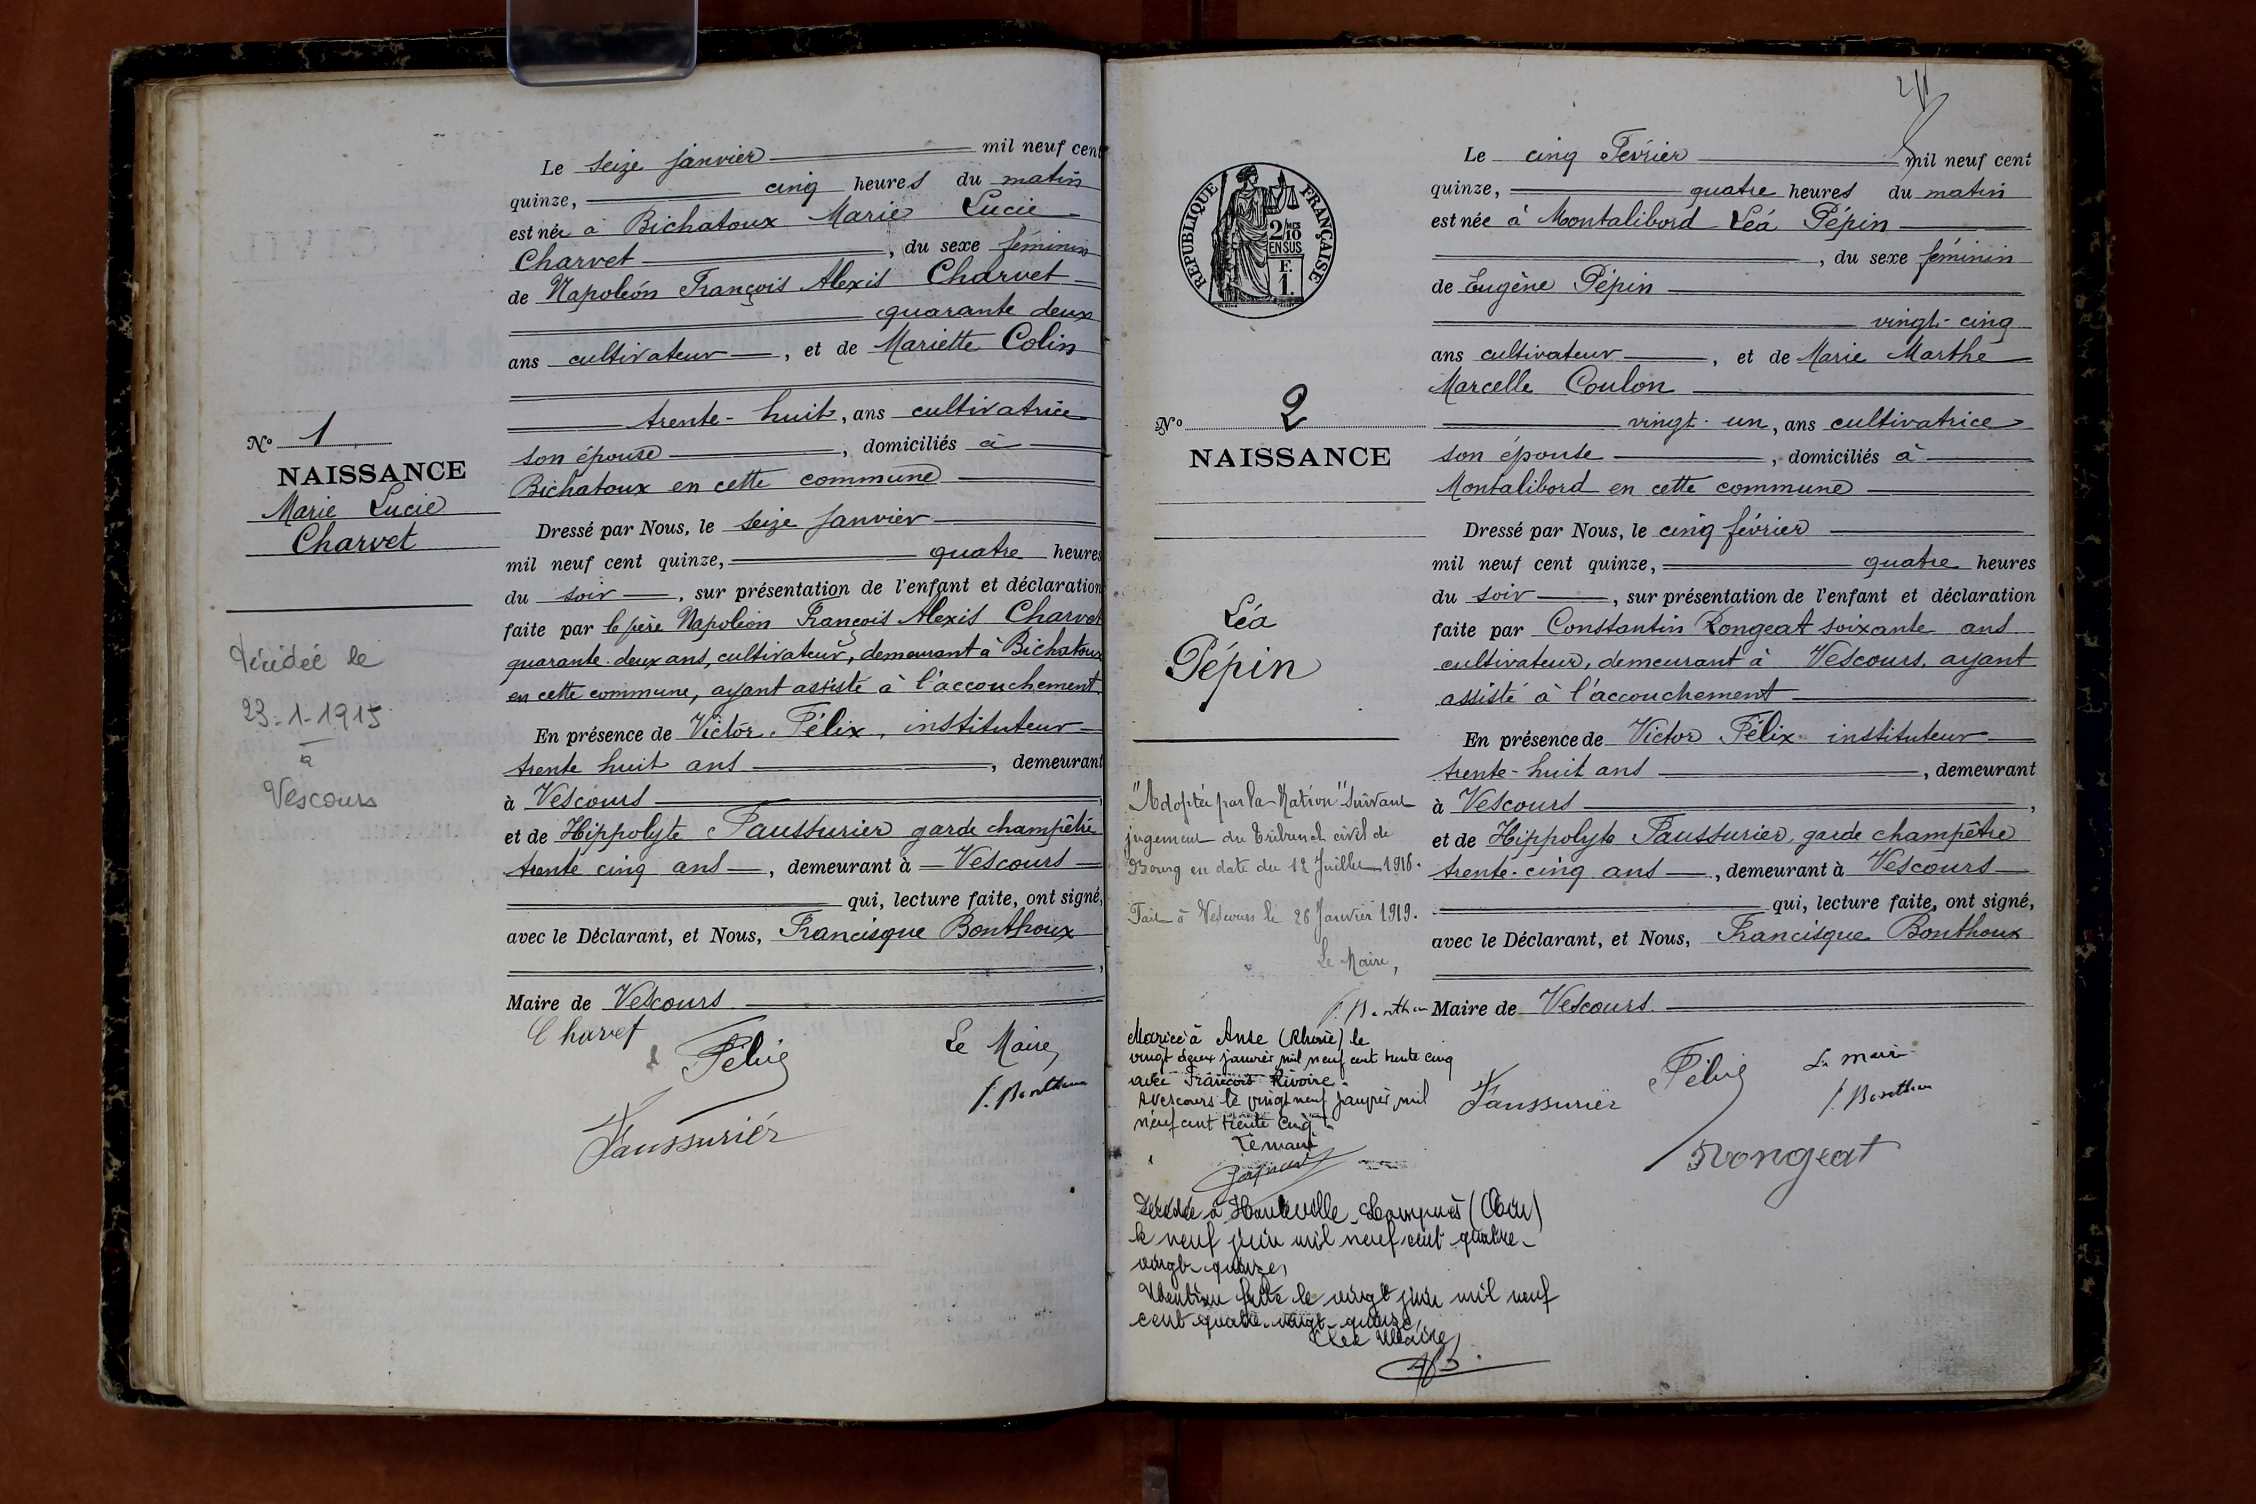 Le seize janvier mil neuf cent
quinze, cinq heures du matin
est née à Bichatoux Marie Lucie
Charvet, du sexe féminin
de Napoléon François Alexis Charvet
quarante deux
ans cultivateur, et de Mariette Colin
trente-huit, ans cultivatrice
son épouse, domiciliés à
Bichatoux en cette commune
Nº 1
NAISSANCE
Marie Lucie
Charvet
Dressé par Nous, le seize janvier
mil neuf cent quinze, quatre heures
du soir, sur présentation de l'enfant et déclaration
faite par le père Napoléon François Alexis Charvet
quarante-deux ans, cultivateur, demeurant à Bichatoux
en cette commune, ayant assisté à l'accouchement
Décédée le
23-1-1915
à
Vescours
En présence de Victor Félix, instituteur
trente huit ans, demeurant
à Vescours,
et de Hippolyte Faussurier garde champêtre
trente cinq ans, demeurant à Vescours
qui, lecture faite, ont signé,
avec le Déclarant, et Nous, Francisque Bonthoux
,
Maire de Vescours
Charvet
Félix
Le Maire,
f. Bonthoux
Faussurier
RÉPUBLIQUE FRANÇAISE
2/10 EN SUS
F. 1.
Le cinq Février mil neuf cent
quinze, quatre heures du matin
est née à Montalibord Léa Pépin
, du sexe féminin
de Eugène Pépin
vingt-cinq
ans cultivateur, et de Marie Marthe
Marcelle Coulon
vingt-un, ans cultivatrice
son épouse, domiciliés à
Montalibord en cette commune
Nº 2
NAISSANCE
Léa
Pépin
Dressé par Nous, le cinq février
mil neuf cent quinze, quatre heures
du soir, sur présentation de l'enfant et déclaration
faite par Constantin Rongeat soixante ans
cultivateur, demeurant à Vescours, ayant
assisté à l'accouchement
En présence de Victor Félix instituteur
trente-huit ans, demeurant
à Vescours,
et de Hippolyte Faussurier, garde champêtre
trente-cinq ans, demeurant à Vescours
qui, lecture faite, ont signé,
avec le Déclarant, et Nous, Francisque Bonthoux
Maire de Vescours
"Adoptée par la Nation" suivant
jugement du Tribunal civil de
Bourg en date du 12 Juillet 1918.
Fait à Vescours le 26 Janvier 1919.
Le Maire,
f. Bonthoux
Mariée à Anse (Rhône) le
vingt deux janvier mil neuf cent trente cinq
avec François Rivoire.
A Vescours le vingt neuf janvier mil
neuf cent trente cinq
Le maire
Décédée à Hauteville-Lompnès (Ain)
le neuf juin mil neuf cent quatre-
vingt-quinze,
Mention faite le vingt juin mil neuf
cent quatre-vingt-quinze,
Le Maire,
Faussurier
Félix
Le maire
f. Bonthoux
Rongeat